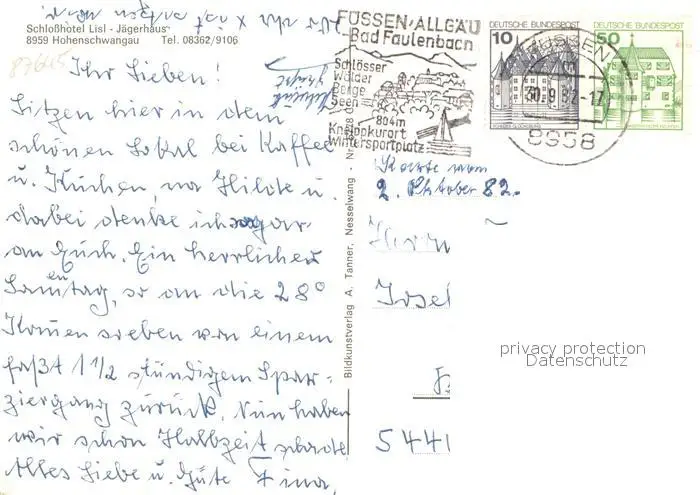 Schloßhotel Lisl - Jägerhaus
8959 Hohenschwangau Tel. 08362/9106
Ihr Lieben!
Sitzen hier in dem
schönen Lokal bei Kaffee
u. Kuchen, na Hilde u.
dabei denke ich sogar
an Euch. Ein herrlicher
Sonnentag, so an die 28°
Kamen soeben von einem
fast 1 1/2 stündigem Spa-
ziergang zurück. Nun haben
wir schon Halbzeit schade
Alles Liebe u. Gute
Bildkunstverlag A. Tanner, Nesselwang - Nr.
FÜSSEN/ALLGÄU
Bad Faulenbach
Schlösser
Wälder
Berge
Seen
804m
Kneippkurort
Wintersportplatz
DEUTSCHE BUNDESPOST
10
DEUTSCHE BUNDESPOST
50
FÜSSEN
30.9.82-17
8958
Karte vom
2. Oktober 82.
Herrn
Josef
5441
privacy protection
Datenschutz